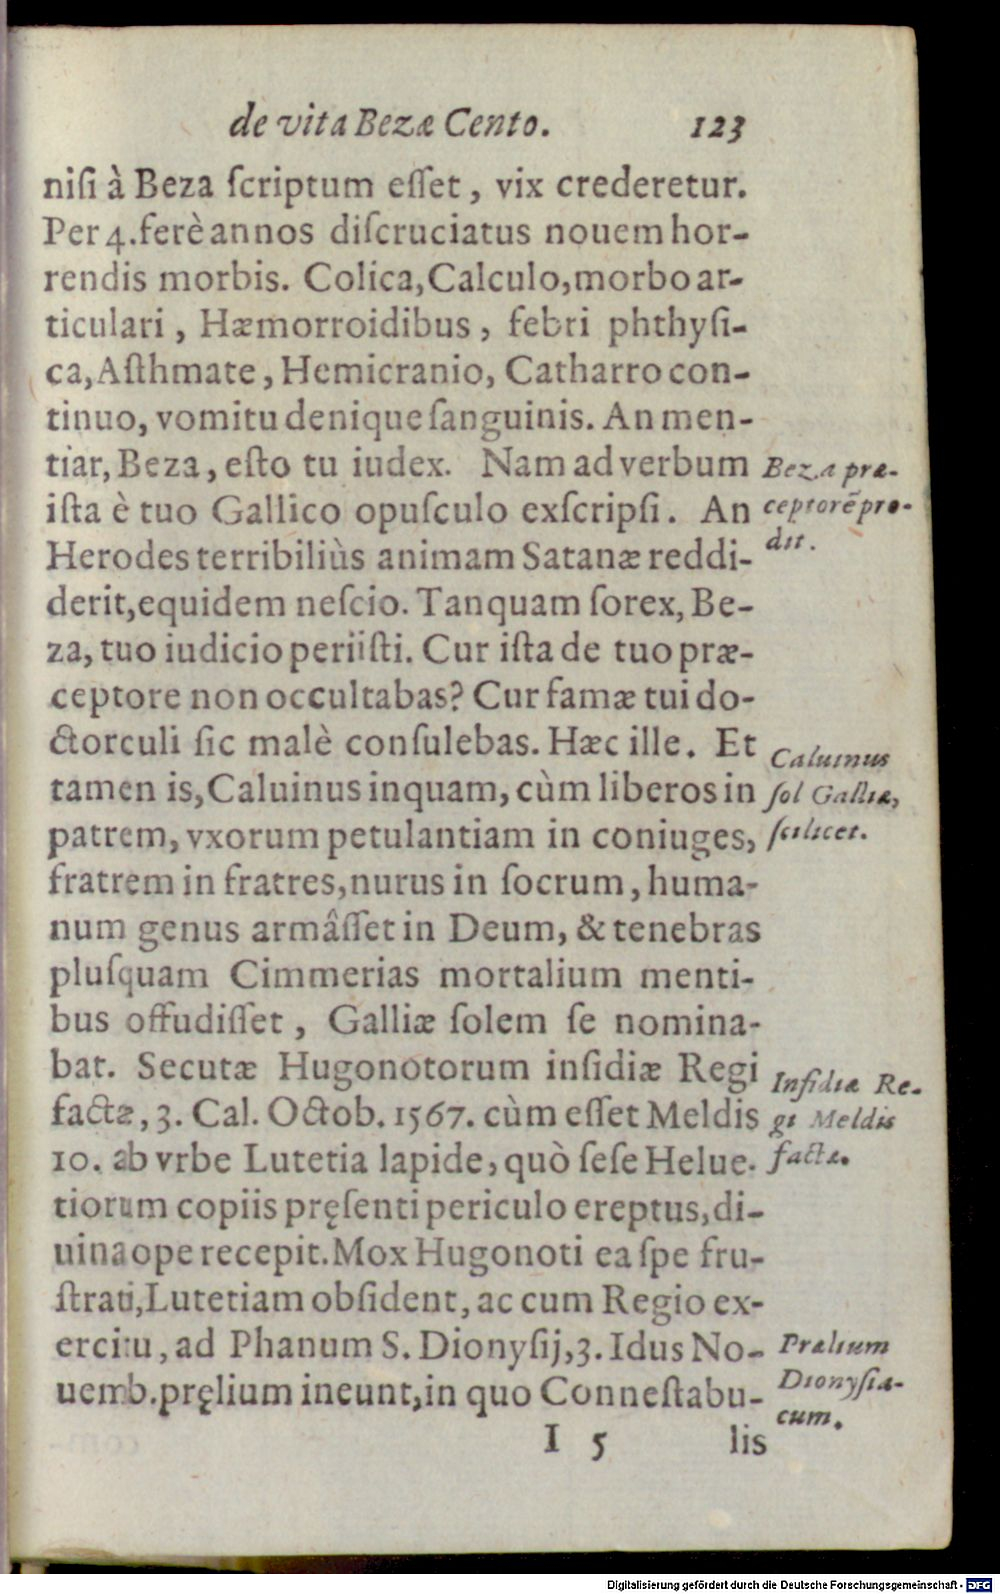 de vita Bezæ Cento. 123
niſi à Beza ſcriptum eſſet, vix crederetur.
Per 4. ferè annos diſcruciatus nouem hor-
rendis morbis. Colica, Calculo, morbo ar-
ticulari, Hæmorroidibus, febri phthyſi-
ca, Aſthmate, Hemicranio, Catharro con-
tinuo, vomitu denique ſanguinis. An men-
tiar, Beza, eſto tu iudex. Nam ad verbum
iſta è tuo Gallico opuſculo exſcripſi. An
Herodes terribiliùs animam Satanæ reddi-
derit, equidem neſcio. Tanquam ſorex, Be-
za, tuo iudicio periiſti. Cur iſta de tuo præ-
ceptore non occultabas? Cur famæ tui do-
ctorculi ſic malè conſulebas. Hæc ille. Et
tamen is, Caluinus inquam, cùm liberos in
patrem, vxorum petulantiam in coniuges,
fratrem in fratres, nurus in ſocrum, huma-
num genus armâſſet in Deum, & tenebras
pluſquam Cimmerias mortalium menti-
bus offudiſſet, Galliæ ſolem ſe nomina-
bat. Secutæ Hugonotorum inſidiæ Regi
factæ, 3. Cal. Octob. 1567. cùm eſſet Meldis
10. ab vrbe Lutetia lapide, quò ſeſe Helue-
tiorum copiis pręſenti periculo ereptus, di-
uina ope recepit. Mox Hugonoti ea ſpe fru-
ſtrati, Lutetiam obſident, ac cum Regio ex-
ercitu, ad Phanum S. Dionyſij, 3. Idus No-
uemb. pręlium ineunt, in quo Conneſtabu-
I 5 lis
Beza præ-
ceptorẽ pro-
dit.
Caluinus
ſol Galliæ,
ſcilicet.
Inſidiæ Re-
gi Meldis
factæ.
Prælium
Dionyſia-
cum.
Digitalisierung gefördert durch die Deutsche Forschungsgemeinschaft - DFG